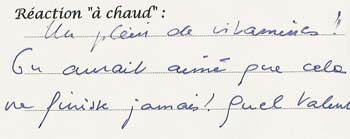 Réaction "à chaud" :
Un plein de vitamines !
On aurait aimé que cela
ne finisse jamais ! Quel talent